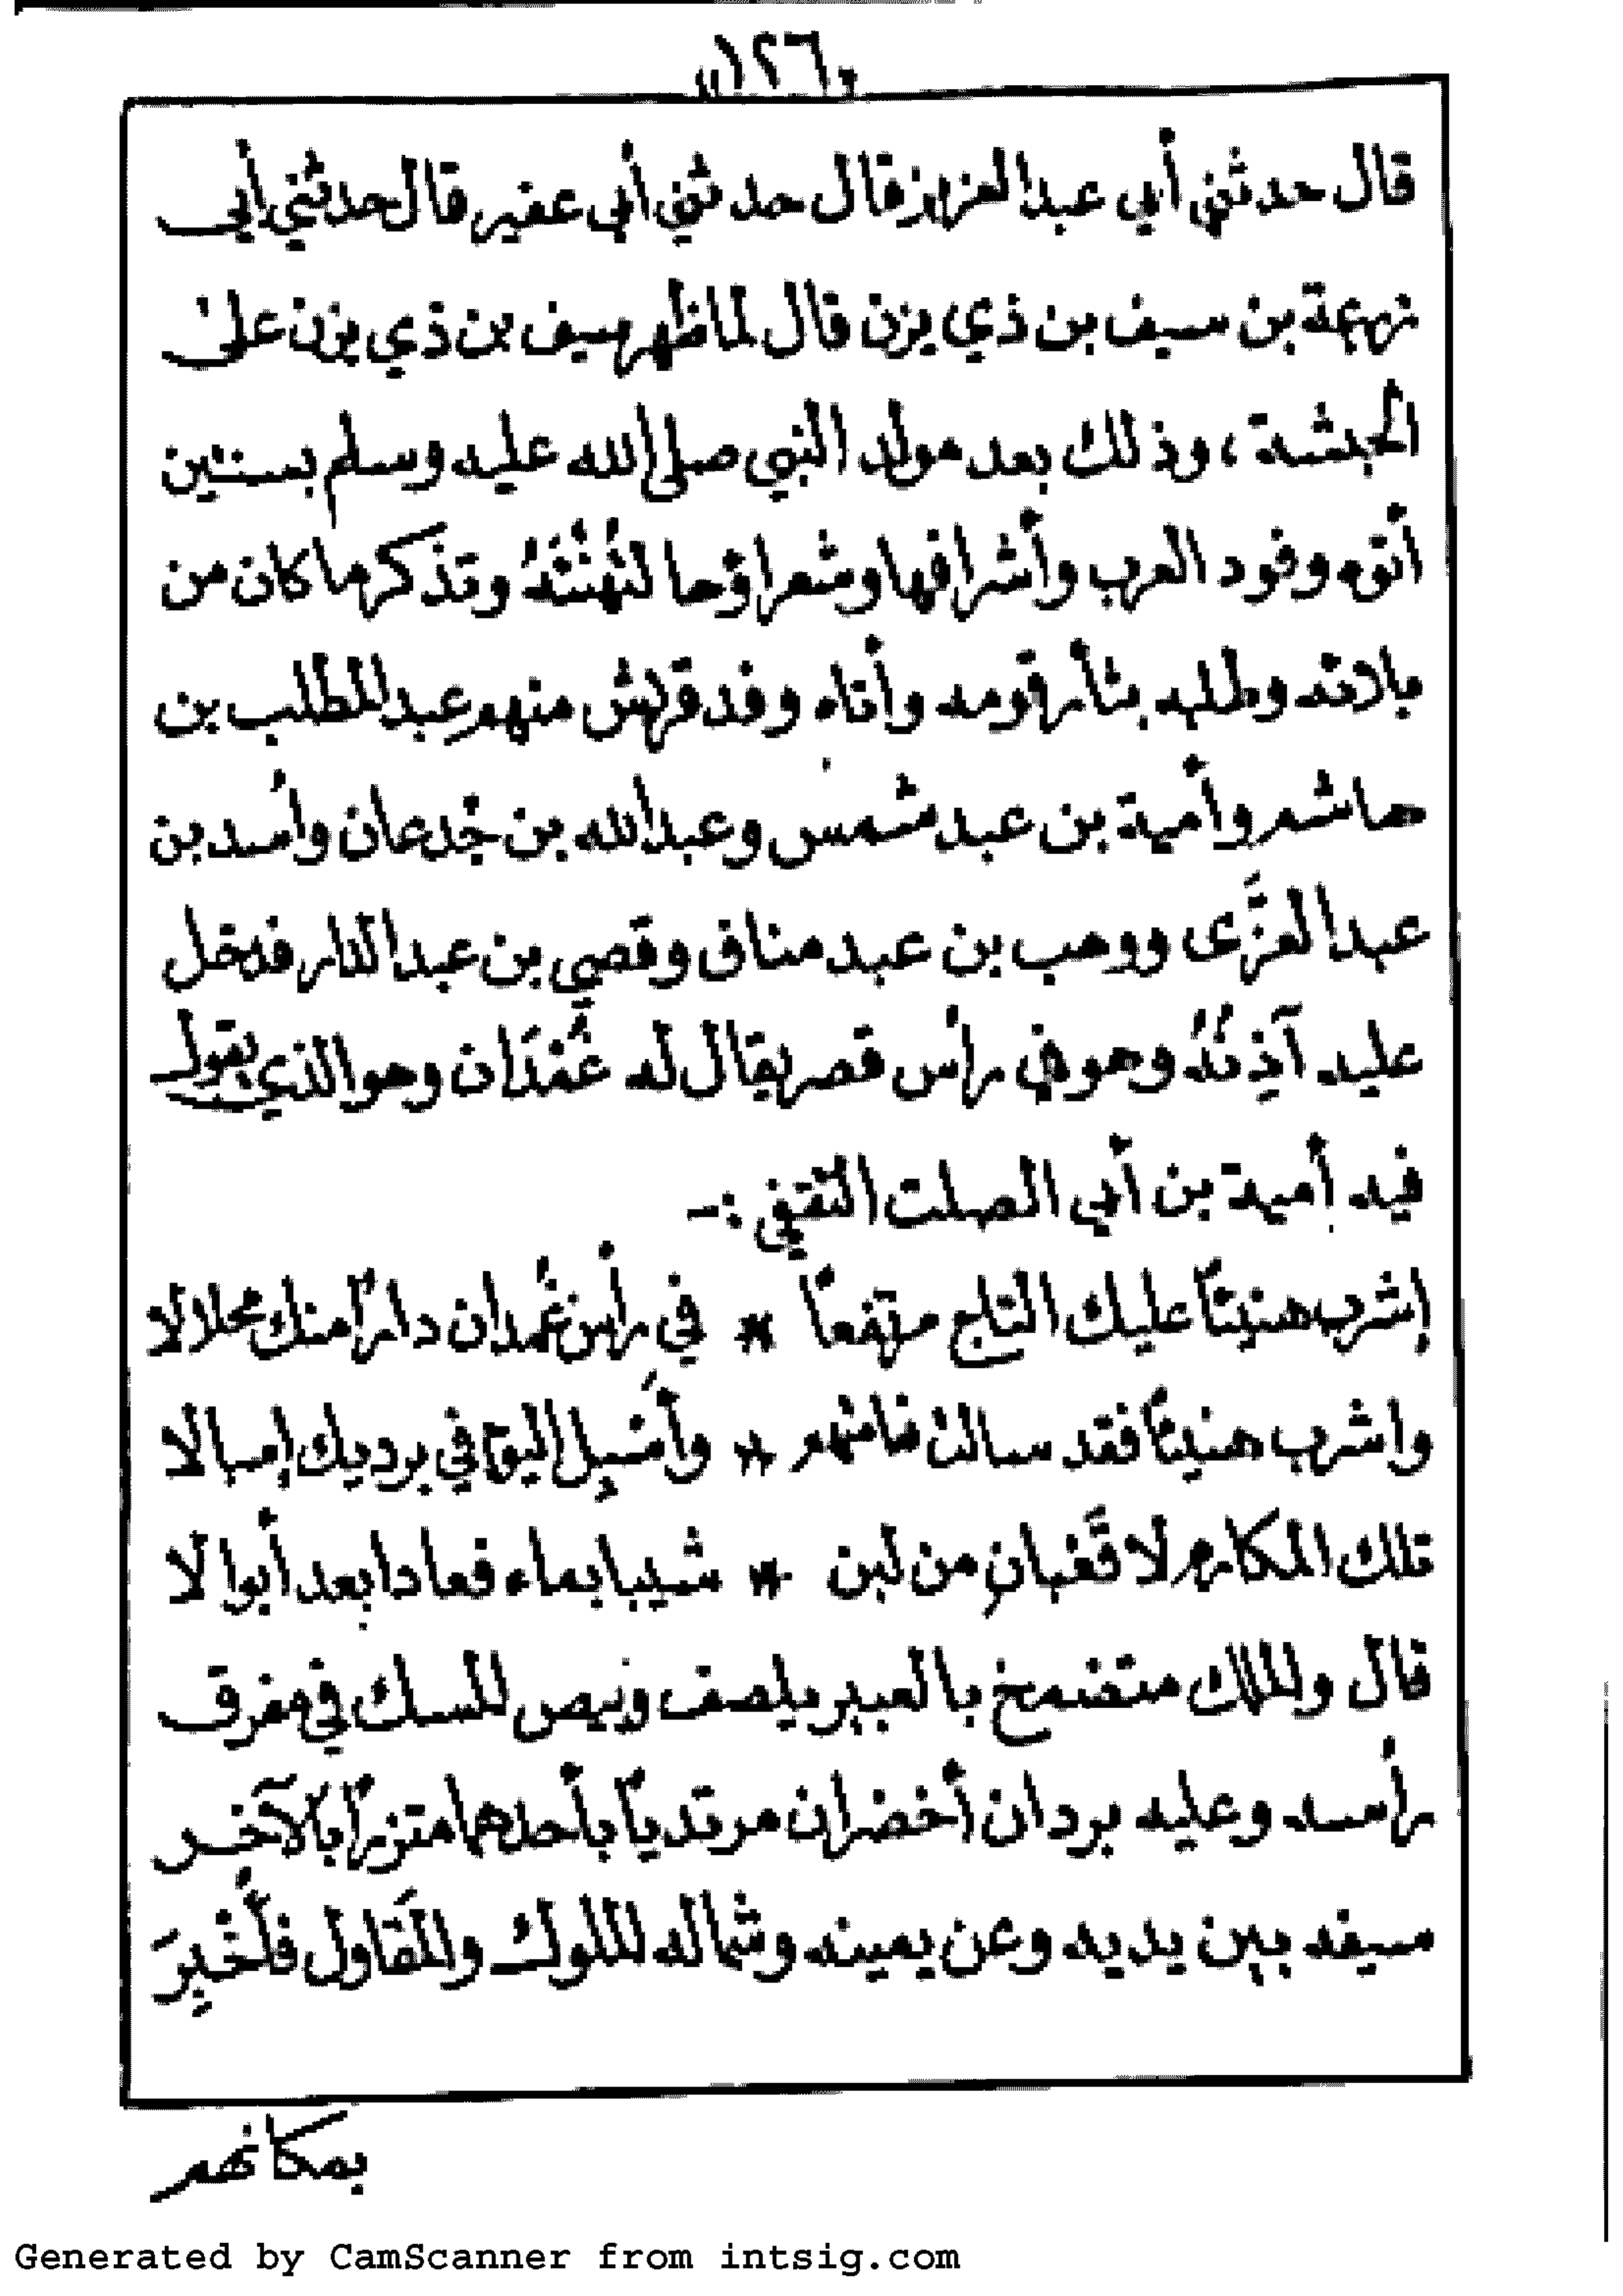 «١٢٦»
قال حدثني أبي عبدالعزيز قال حدثني أبي عفير قال حدثني أبي
زرعة بن سيف بن ذي يزن قال لما ظهر سيف بن ذي يزن على
الحبشة، وذلك بعد مولد النبي صلى الله عليه وسلم بسنتين
أتوه وفود العرب وأشرافها وشعراؤها لتُهنئَهُ وتذكر ما كان من
بلائه وطلبه بثأر قومه وأتاه وفد قريش منهم عبدالمطلب بن
هاشم وأمية بن عبد شمس وعبدالله بن جُدعان وأسد بن
عبدالعزَّى ووهب بن عبد مناف وقصي بن عبدالدار فدخل
عليه آذِنُهُ وهو في رأس قصر يقال له غُمْدَان وهو الذي يقول
فيه أمية بن أبي الصلت الثقفي :-
إشرب هنيئاً عليك التاج مرتفعاً * في رأس غُمدان داراً منك محلالا
واشرب هنيئاً فقد سالت نعامتهم * وأَسْبِل اليوم في برديك إسبالا
تلك المكارم لا قَعْبانِ من لبن * شيبا بماء فعادا بعد أبوالا
قال والملك متضمخ بالعبير يلصف وبيص المسك في مفرق
رأسه وعليه بردان أخضران مرتدياً بأحدهما متزراً بالآخر
سيفه بين يديه وعن يمينه وشماله الملوك والمَقاول فأُخْبِرَ
بمكانهم
Generated by CamScanner from intsig.com